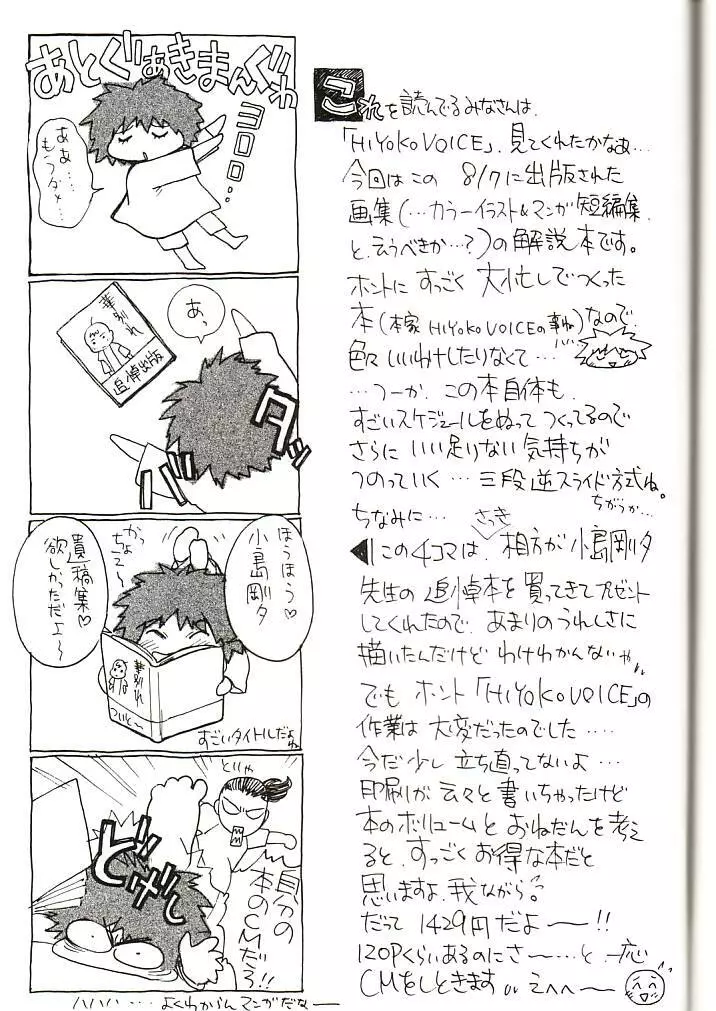 あとぐあきまんぐわ
ヨロロ…
ああ…
もうダメ…
あっ
華別れ
追悼出版
ガバッ
ほうほう♡
小島剛夕
かっちょえ〜
遺稿集♡
欲しかっただよ〜
華別れ
すごいタイトルだよね
どいや
どげしっ
自分の
本のCMだろ!!
ハハハ…よくわからんマンガだなー
これを読んでるみなさんは、
「HIYOKO VOICE」、見てくれたかなぁ…
今回はこの 8/7に出版された
画集(…カラーイラスト&マンガ短編集、
と、云うべきか…?)の解説本です。
ホントに すっごく 大忙しでつくった
本(本家 HIYOKO VOICEの事ね)なので、
色々 いいわけしたりなくて…
…つーか、この本自体も、
すごいスケジュールをぬって つくってるので
さらに いい足りない 気持ちが
つのっていく…三段逆スライド方式ね。
ちがうか…
ちなみに…
さっき
この4コマは、相方が 小島剛夕
先生の 追悼本を 買ってきてプレゼント
してくれたので、あまりの うれしさに
描いたんだけど わけわかんないや
でも ホント「HIYOKO VOICE」の
作業は 大変だったのでした…
今だ少し 立ち直ってないよ…
印刷が 云々と 書いちゃったけど
本のボリュームと おねだんを 考え
ると、すっごく お得な本だと
思いますよ、我ながら。
だって 1429円だよー!!
120Pくらいあるのにさ〜…と、一応
CMをしときます えへへ〜